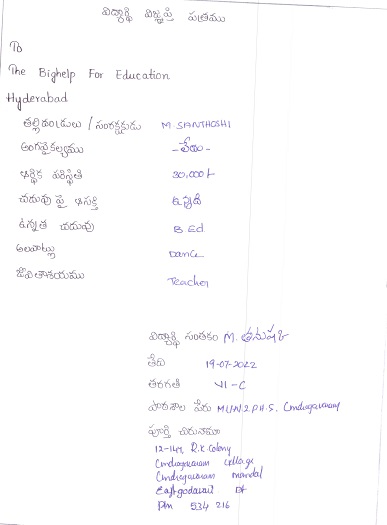 విద్యార్థి విజ్ఞప్తి పత్రము
To
The Bighelp For Education
Hyderabad
తల్లిదండ్రులు / సంరక్షకుడు M. SANTHOSHI
అంగవైకల్యము - లేదు -
ఆర్థిక పరిస్థితి 30,000/-
చదువు పై ఆసక్తి ఉన్నది
ఉన్నత చదువు B Ed
అలవాట్లు Dance
జీవితాశయము Teacher
విద్యార్థి సంతకం M.
తేది 19-07-2022
తరగతి VI - C
పాఠశాల పేరు M.U.N.Z.P.H.S.
పూర్తి చిరునామా
R.K. Colony
village
mandal
East godavari Dt
Pin 534 216